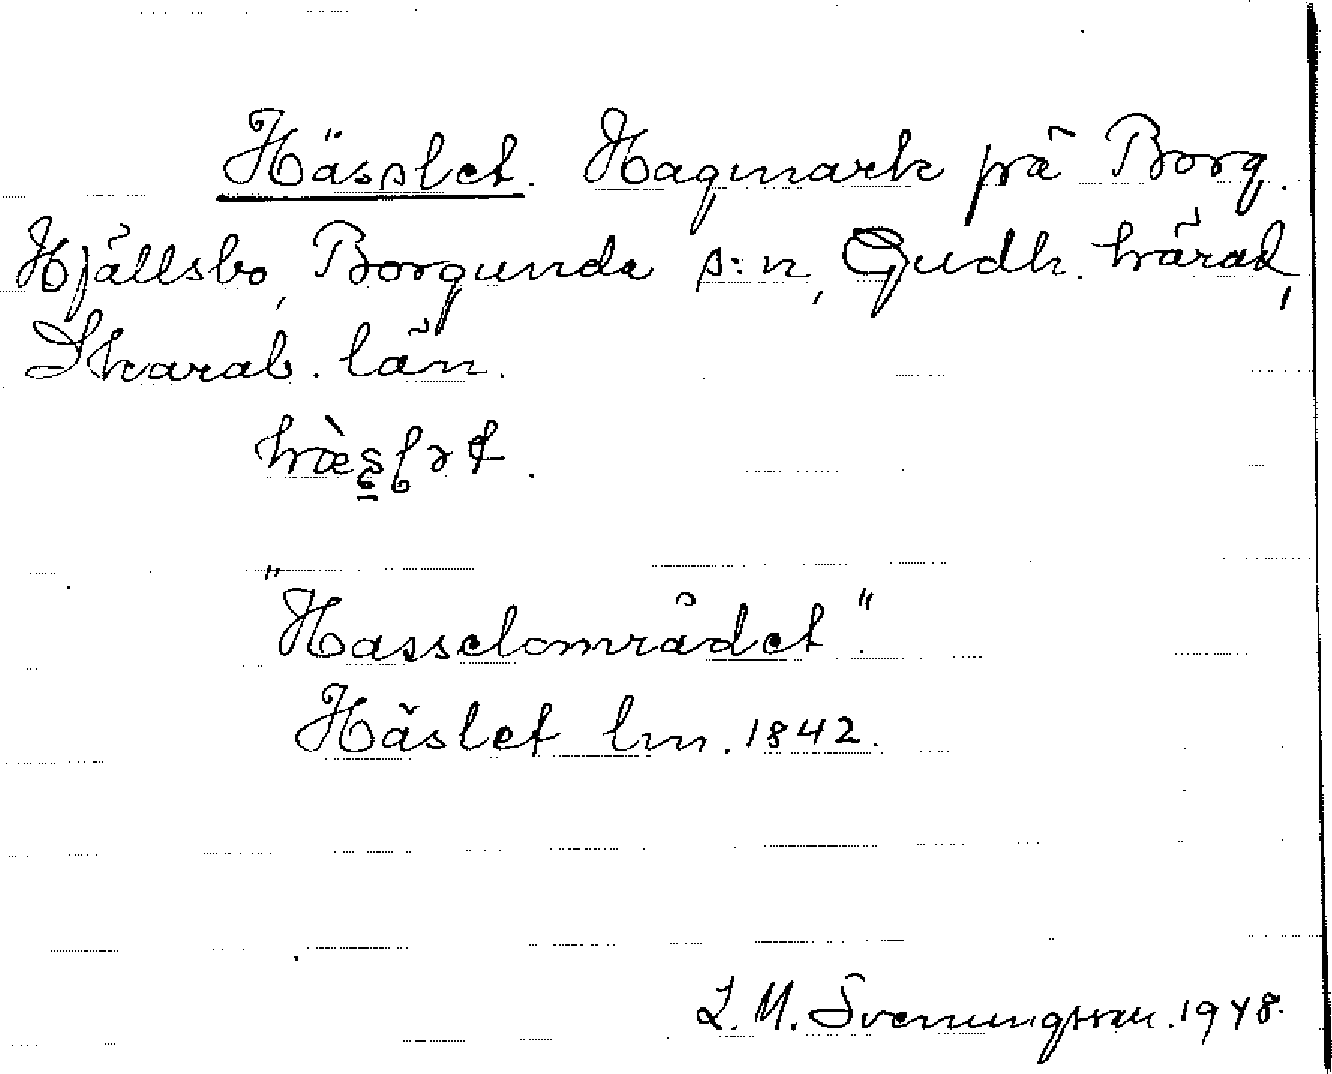 Hässlet. Hagmark på Borg.
Hjällsbo, Borgunda s:n, Gudh. härad,
Skarab. län.
"Hasselområdet".
Häslet lm. 1842.
L. M. Svenungsson. 1948.